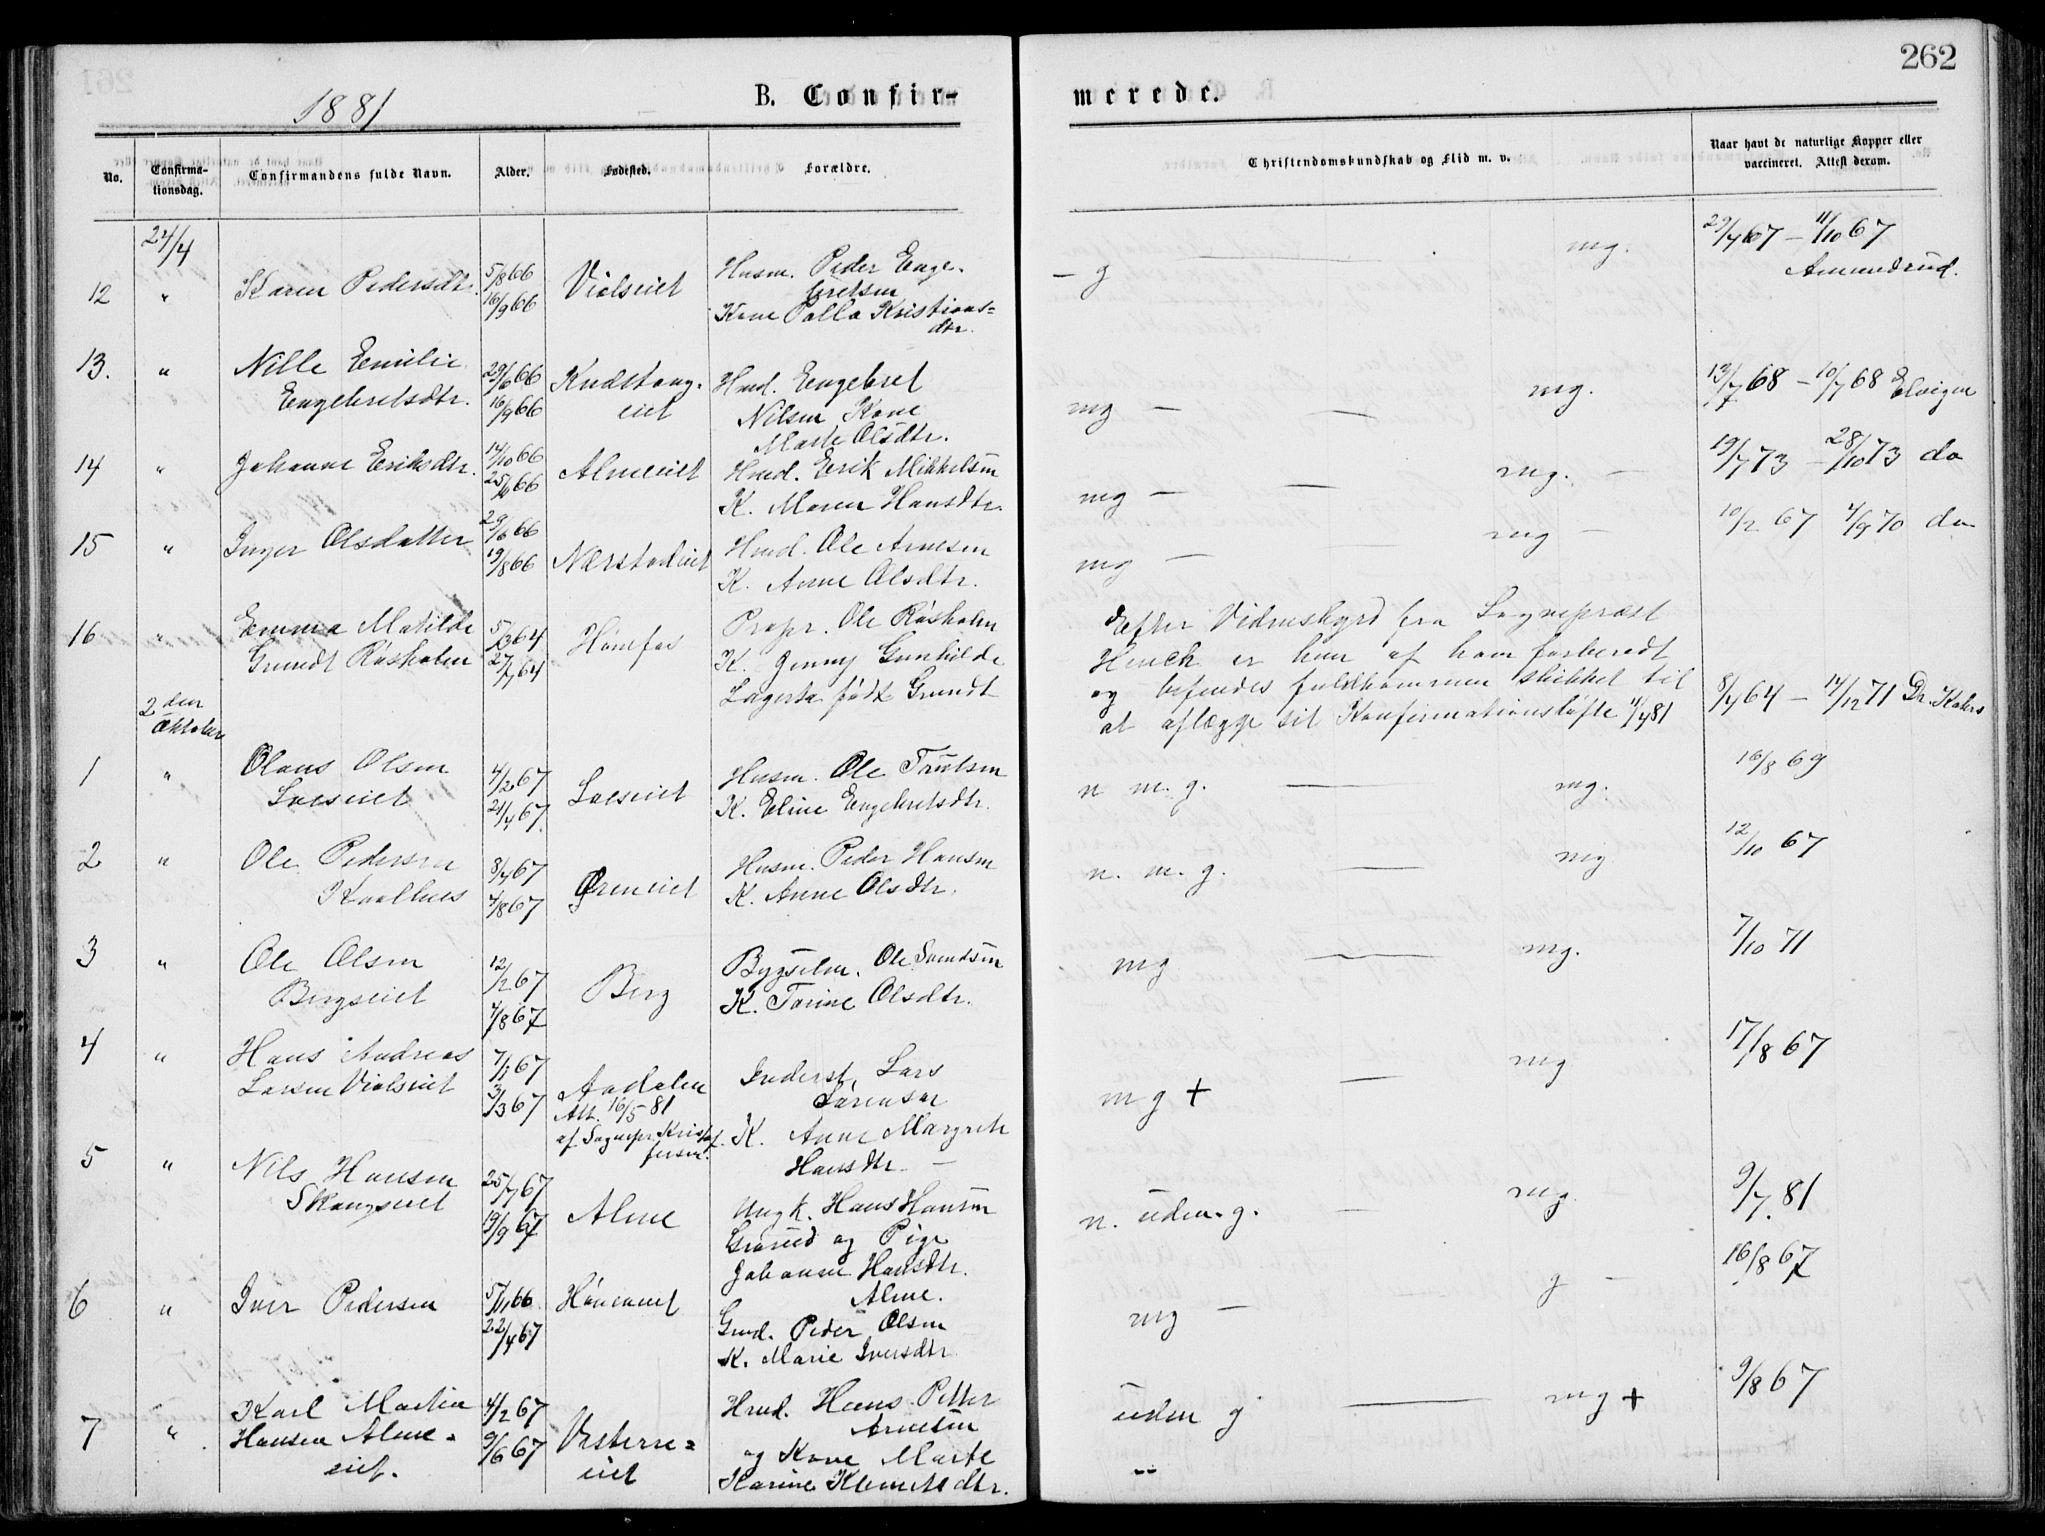 262
1881
B. Confir-
merede.
No.
Confirma-
tionsdag.
Confirmandens fulde Navn.
Alder.
Fødested.
Forældre.
Christendomskundskab og Flid m. v.
Naar havt de naturlige Kopper eller
vaccineret. Attest derom.
24/4
12 " Karen Pedersdtr. 5/8 66 Violseiet Husm. Peder Enge-
16/9 66
bretsen
Kone Kristians=
dtr.
- g — mg. 11/10 67
Amundrud.
13. " Nille Emilie 29/6 66 Hmd. Engebret
Engebretsdtr. 16/9 66 eiet Nilsen Kone
Marte Olsdtr.
mg — — mg. 13/7 68 – 10/7 68 Elvigen
14 " Johanne Eriksdtr. 14/10 66 Almeeiet Hmd. Erik Mikkelsen
K. Maren Hansdtr.
mg — — mg. — 19/7 73 – 28/10 73 do
15 " Inger Olsdatter 29/6 66
19/8 66 Nærstadeiet Hmd. Ole Arnesen
K. Anne Olsdtr.
mg — — mg — 10/2 67 4/9 70 do
16 " Emma Matilde 5/3 64 Hønefos Propr. Ole Røsholm
Grundt Røsholm 27/7 64 K. Jenny Gunhilde
Lagerta født Grundt
Efter Vidnesbyrd fra Sognepræst
Henck er hun af ham forberedt
og befindes fuldkommen skikket til
at aflægge sit Konfirmationsløfte 11/4 81
8/7 64 – 14/12 71 Dr.
2den
Oktober
1 " Olaus Olsen 4/2 67 Loeseiet Husm. Ole
Loeseiet 21/4 67 K. Eline Engebretsdtr.
n m. g. — mg. 16/8 69
2 " Ole Pedersen 8/7 67 Øreneiet Husm. Peder Hansen
4/8 67 K. Anne Olsdtr.
n. m. g. — mg 12/10 67
3 " Ole Olsen 12/2 67 Berg Bygselm. Ole Svendsen
Bergseiet 4/8 67 K. Torine Olsdtr.
mg — mg. 7/10 71
4 " Hans Andreas 7/1 67 Aadalen Inderst, Lars
Larsen Violseiet 3/3 67 Att. 16/5 81 Sørensen
af Sognepr. Kristof- K. Anne Margrete
fersen. Hansdtr. —
m g + — mg 17/8 67
5 " Nils Hansen 25/7 67 Alme Ungk. Hans Hansen
19/9 67 og Pige
Johanne Hansdtr.
Alme.
n. uden. g. — mg. 9/7. 81
6 " Iver Pedersen 5/11 66 Gmd. Peder Olsen
22/4 67 K. Marie Iversdtr.
mg — g — 16/8 67
7 " Karl Martin 4/2 67 Vesterne= Hmd. Hans Petter
Hansen Alme= 9/6 67 eiet Arnesen
eiet. og Kone Marte
Karine Klemetsdtr.
uden g — mg + 9/8 67